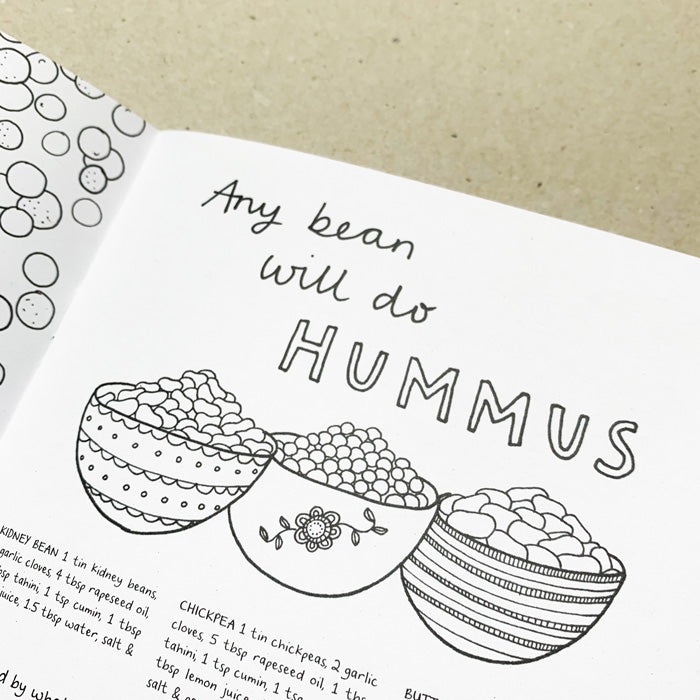 Any bean
will do
HUMMUS
KIDNEY BEAN 1 tin kidney beans,
garlic cloves, 4 tbsp rapeseed oil,
tahini, 1 tsp cumin, 1 tbsp
juice, 1.5 tbsp water, salt &
CHICKPEA 1 tin chickpeas, 2 garlic
cloves, 5 tbsp rapeseed oil, 1
tahini, 1 tsp cumin, 1
tbsp lemon juice
salt &